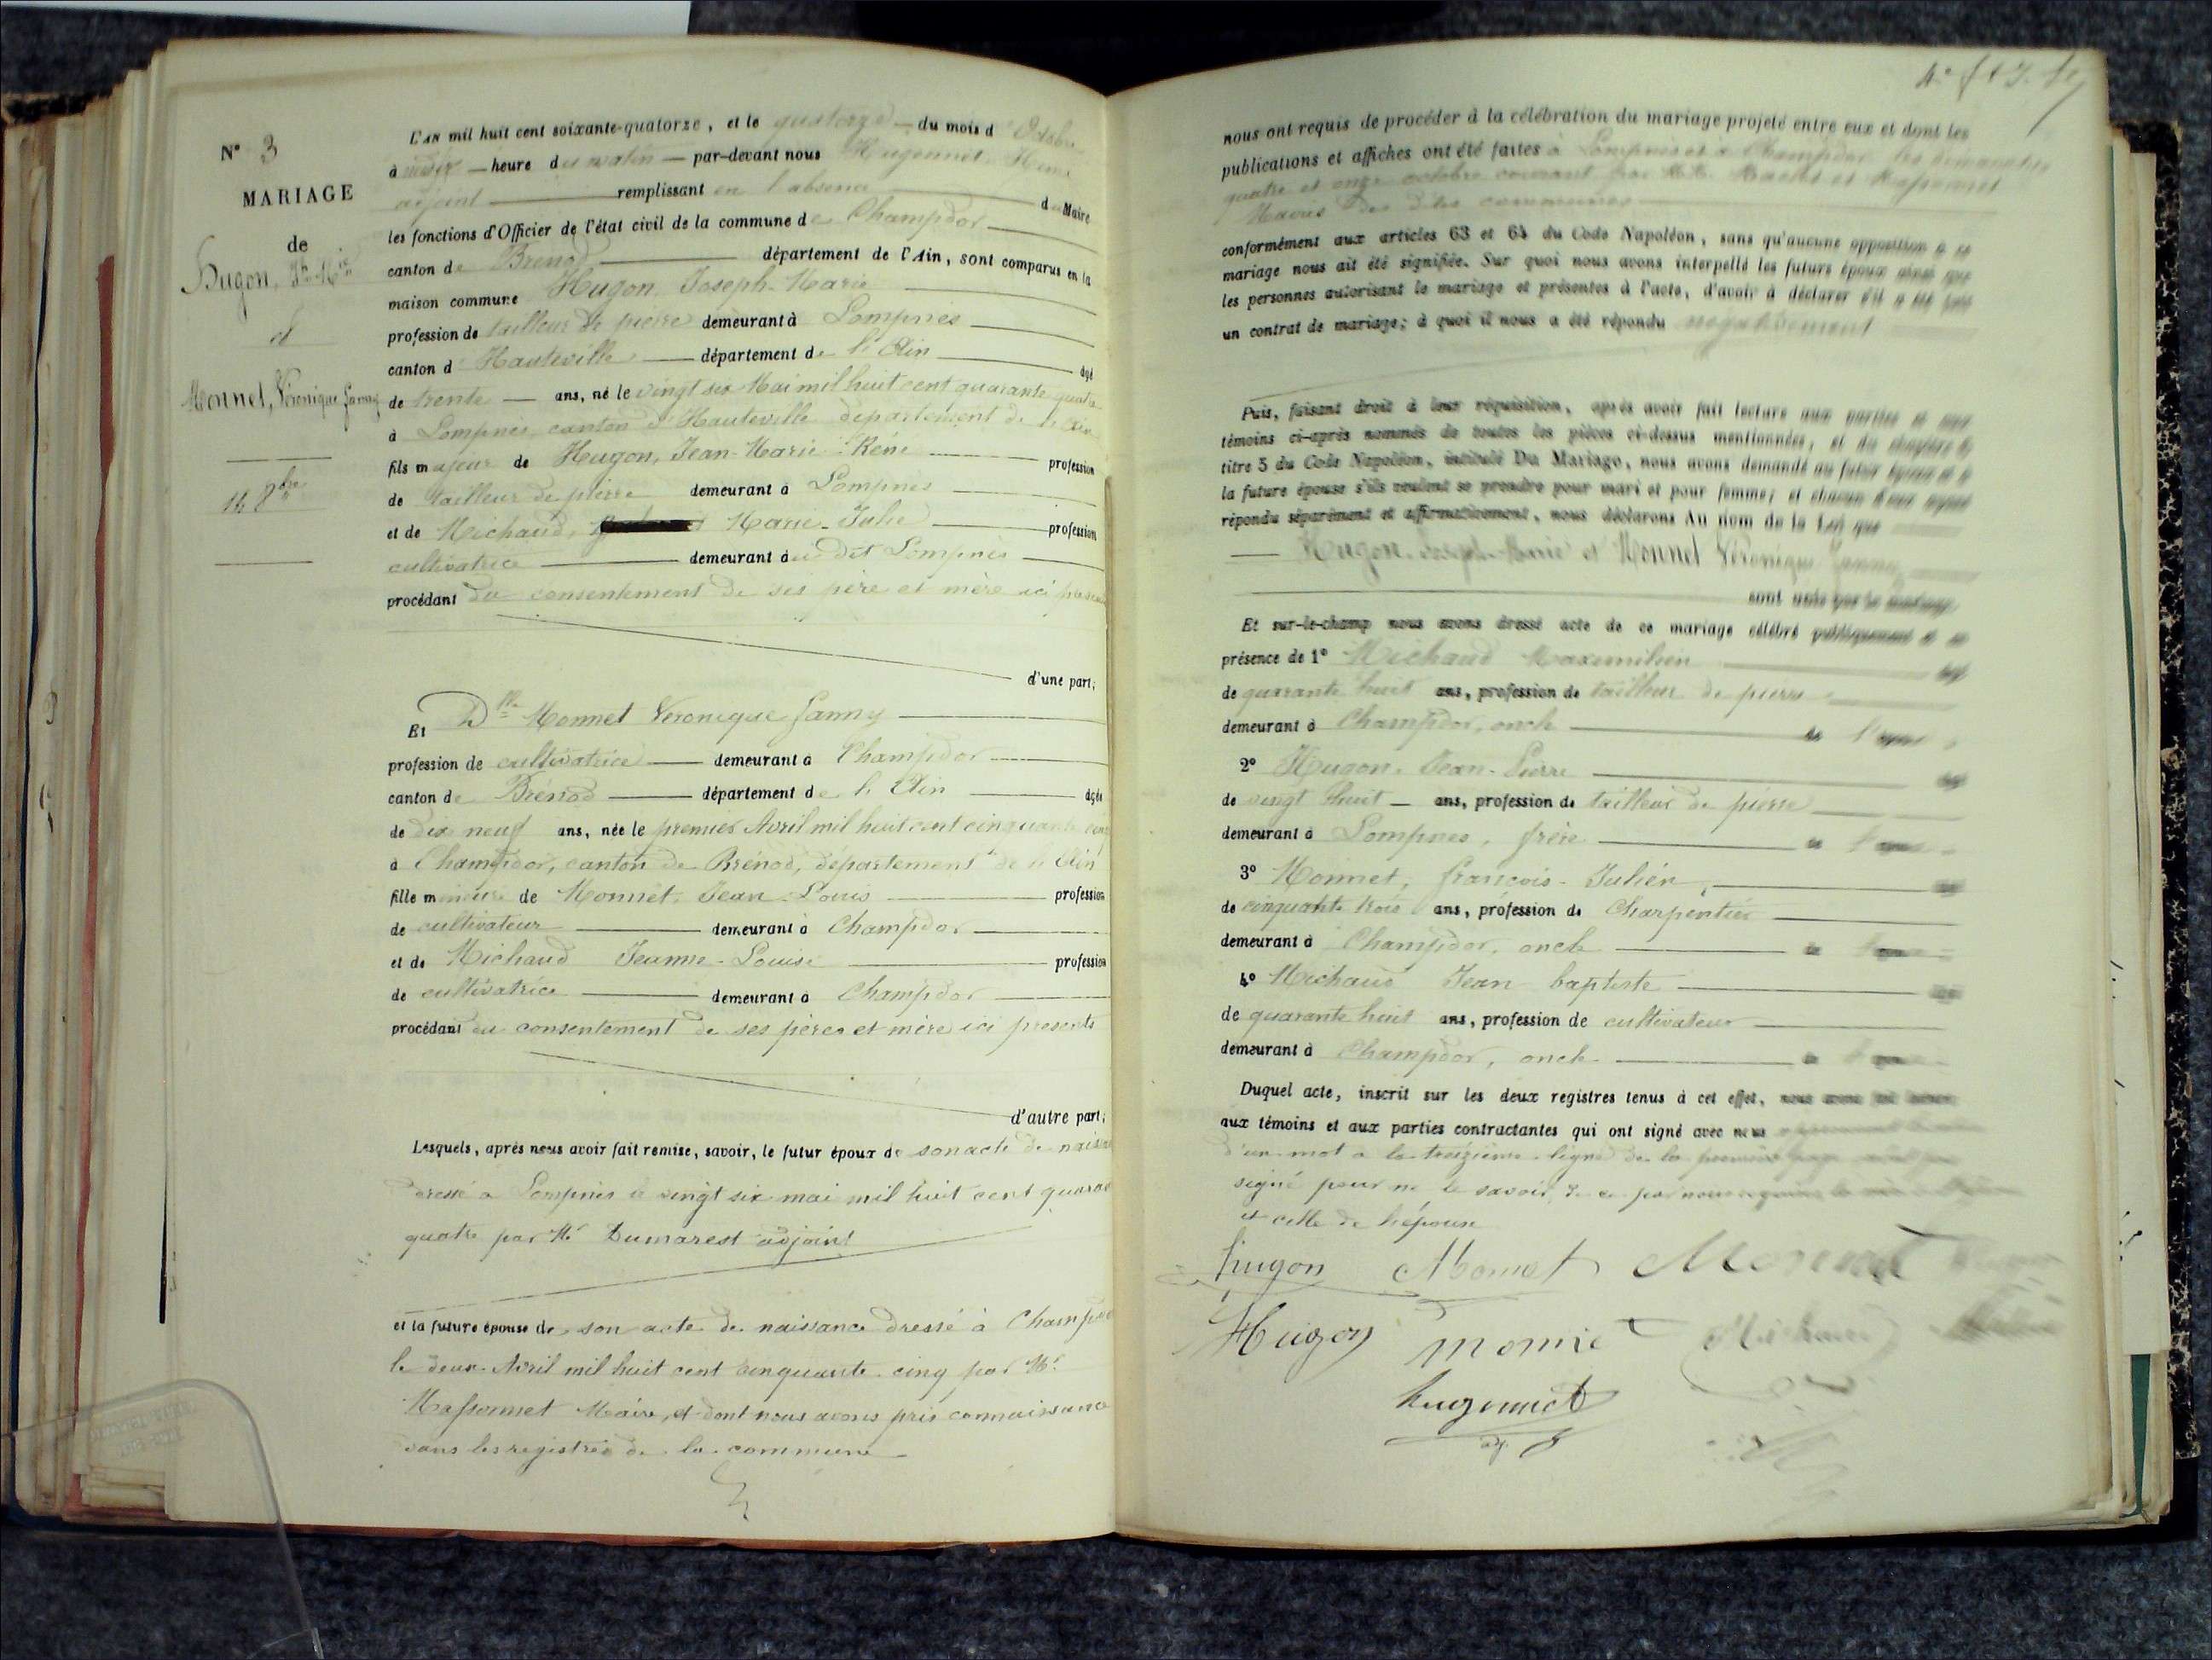 N° 3
MARIAGE
de
Hugon, Jh Mie
et
Monnet, Véronique fanny
14 8bre
L'AN mil huit cent soixante-quatorze, et le quatorze du mois d'Octobre
à dix heure du matin par-devant nous Hugonnet
adjoint remplissant en l'absence du Maire
les fonctions d'Officier de l'état civil de la commune de Champdor
canton de Brénod département de l'Ain, sont comparus en la
maison commune Hugon, Joseph-Marie
profession de tailleur de pierre demeurant à Lompnes
canton d'Hauteville département de l'Ain âgé
de trente ans, né le vingt six Mai mil huit cent quarante quatre
à Lompnes, canton d'Hauteville département de l'Ain
fils majeur de Hugon, Jean-Marie René profession
de tailleur de pierre demeurant à Lompnes
et de Michaud, Marie-Julie profession
cultivatrice demeurant audit Lompnès
procédant du consentement de ses père et mère ici présents
d'une part;
Et Dlle Monnet Véronique fanny
profession de cultivatrice demeurant à Champdor
canton de Brénod département de l'Ain âgée
de dix neuf ans, née le premier Avril mil huit cent cinquante cinq
à Champdor, canton de Brénod, département de l'Ain
fille mineure de Monnet, Jean-Louis profession
de cultivateur demeurant à Champdor
et de Michaud Jeanne-Louise profession
de cultivatrice demeurant à Champdor
procédant du consentement de ses pères et mère ici présents
d'autre part;
Lesquels, après nous avoir fait remise, savoir, le futur époux de son acte de naissance
dressé à Lompnès le vingt six mai mil huit cent quarante
quatre par Mr Dumarest adjoint
et la future épouse de son acte de naissance dressé à Champdor
le deux Avril mil huit cent cinquante cinq par Mr
Massonnet Maire, et dont nous avons pris connaissance
dans les registres de la commune
nous ont requis de procéder à la célébration du mariage projeté entre eux et dont les
publications et affiches ont été faites à Lompnès et à Champdor les dimanches
quatre et onze octobre courant par M.M. et Massonnet
Maires des dites communes
conformément aux articles 63 et 64 du Code Napoléon, sans qu'aucune opposition à ce
mariage nous ait été signifiée. Sur quoi nous avons interpellé les futurs époux ainsi que
les personnes autorisant le mariage et présentes à l'acte, d'avoir à déclarer s'il a été fait
un contrat de mariage; à quoi il nous a été répondu négativement
Puis, faisant droit à leur réquisition, après avoir fait lecture aux parties et aux
témoins ci-après nommés de toutes les pièces ci-dessus mentionnées, et du chapitre 6
titre 5 du Code Napoléon, intitulé Du Mariage, nous avons demandé au futur époux et à
la future épouse s'ils veulent se prendre pour mari et pour femme; et chacun d'eux ayant
répondu séparément et affirmativement, nous déclarons Au nom de la Loi que
Hugon, Joseph-Marie et Monnet Véronique fanny
sont unis par le mariage
Et sur-le-champ nous avons dressé acte de ce mariage célébré publiquement et en
présence de 1° Michaud Maximilien âgé
de quarante huit ans, profession de tailleur de pierre
demeurant à Champdor, oncle de l'époux
2° Hugon, Jean-Pierre âgé
de vingt huit ans, profession de tailleur de pierre
demeurant à Lompnes, frère de l'époux
3° Monnet, françois-Julien, âgé
de cinquante trois ans, profession de Charpentier
demeurant à Champdor, oncle de
4° Michaud Jean baptiste âgé
de quarante huit ans, profession de cultivateur
demeurant à Champdor, oncle de
Duquel acte, inscrit sur les deux registres tenus à cet effet, nous avons fait lecture
aux témoins et aux parties contractantes qui ont signé avec nous
d'un mot à la treizième ligne de la première page
signé pour ne le savoir, de ce par nous
et celle de l'épouse
hugon Monnet Monnet
Hugon monnet Michaud
hugonnet
adj.